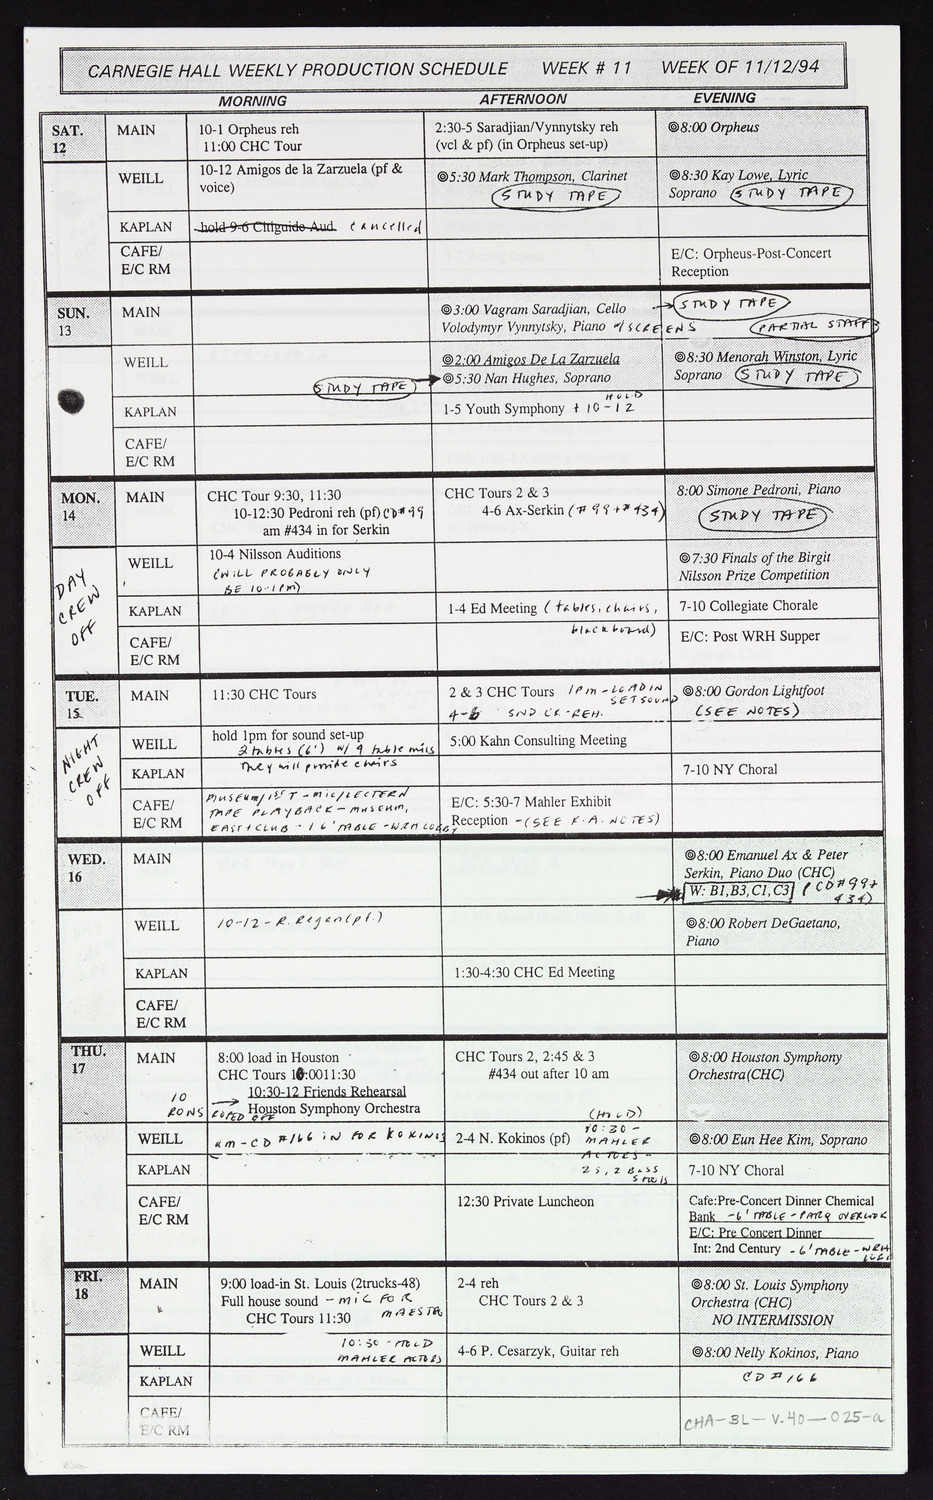 CARNEGIE HALL WEEKLY PRODUCTION SCHEDULE WEEK # 11 WEEK OF 11/12/94
MORNING AFTERNOON EVENING
SAT.
12
MAIN
10-1 Orpheus reh
11:00 CHC Tour
2:30-5 Saradjian/Vynnytsky reh
(vcl & pf) (in Orpheus set-up)
◎8:00 Orpheus
WEILL
10-12 Amigos de la Zarzuela (pf &
voice)
◎5:30 Mark Thompson, Clarinet
STUDY TAPE
◎8:30 Kay Lowe, Lyric
Soprano STUDY TAPE
KAPLAN
hold 9-6 Citiguide Aud. cancelled
CAFE/
E/C RM
E/C: Orpheus-Post-Concert
Reception
SUN.
13
MAIN
◎3:00 Vagram Saradjian, Cello
Volodymyr Vynnytsky, Piano w/SCREENS
STUDY TAPE
PARTIAL STAFF
WEILL
STUDY TAPE
◎2:00 Amigos De La Zarzuela
◎5:30 Nan Hughes, Soprano
◎8:30 Menorah Winston, Lyric
Soprano STUDY TAPE
KAPLAN
HOLD
1-5 Youth Symphony + 10-12
CAFE/
E/C RM
MON.
14
DAY
CREW
OFF
MAIN
CHC Tour 9:30, 11:30
10-12:30 Pedroni reh (pf) CD#99
am #434 in for Serkin
CHC Tours 2 & 3
4-6 Ax-Serkin (#99+#434)
8:00 Simone Pedroni, Piano
STUDY TAPE
WEILL
10-4 Nilsson Auditions
(WILL PROBABLY ONLY
BE 10-1PM)
◎7:30 Finals of the Birgit
Nilsson Prize Competition
KAPLAN
1-4 Ed Meeting (tables, chairs,
blackboard)
7-10 Collegiate Chorale
CAFE/
E/C RM
E/C: Post WRH Supper
TUE.
15
NIGHT
CREW
OFF
MAIN
11:30 CHC Tours
2 & 3 CHC Tours 1PM-LOAD IN
SET SOUND
4-6 SND CK-REH.
◎8:00 Gordon Lightfoot
(SEE NOTES)
WEILL
hold 1pm for sound set-up
2 tables (6') w/ 4 table mics
They will provide chairs
5:00 Kahn Consulting Meeting
KAPLAN
7-10 NY Choral
CAFE/
E/C RM
MUSEUM/1ST - MIC/LECTERN
TAPE PLAYBACK - MUSEUM,
EAST+CLUB - 1 6' TABLE - WRH LOBBY
E/C: 5:30-7 Mahler Exhibit
Reception -(SEE K.A. NOTES)
WED.
16
MAIN
◎8:00 Emanuel Ax & Peter
Serkin, Piano Duo (CHC)
W: B1,B3,C1,C3 (CD#99+
434)
WEILL
10-12 - R. Regen (pf.)
◎8:00 Robert DeGaetano,
Piano
KAPLAN
1:30-4:30 CHC Ed Meeting
CAFE/
E/C RM
THU.
17
MAIN
8:00 load in Houston
CHC Tours 10:0011:30
10:30-12 Friends Rehearsal
Houston Symphony Orchestra
10
ROWS ROPED OFF
CHC Tours 2, 2:45 & 3
#434 out after 10 am
◎8:00 Houston Symphony
Orchestra(CHC)
WEILL
am-CD #166 IN FOR KOKINOS
2-4 N. Kokinos (pf)
(HOLD)
10:30-
MAHLER
ACTORS-
◎8:00 Eun Hee Kim, Soprano
KAPLAN
25, 2 BASS
Stools
7-10 NY Choral
CAFE/
E/C RM
12:30 Private Luncheon
Cafe:Pre-Concert Dinner Chemical
Bank -6' TABLE-PARQ OVERLOOK
E/C: Pre Concert Dinner
Int: 2nd Century -6' TABLE-WRH
FRI.
18
MAIN
9:00 load-in St. Louis (2trucks-48)
Full house sound - MIC FOR
MAESTRO
CHC Tours 11:30
2-4 reh
CHC Tours 2 & 3
◎8:00 St. Louis Symphony
Orchestra (CHC)
NO INTERMISSION
WEILL
10:30 - HOLD
MAHLER ACTORS
4-6 P. Cesarzyk, Guitar reh
◎8:00 Nelly Kokinos, Piano
KAPLAN
CD #166
CAFE/
E/C RM
CHA-BL-V.40-025-a